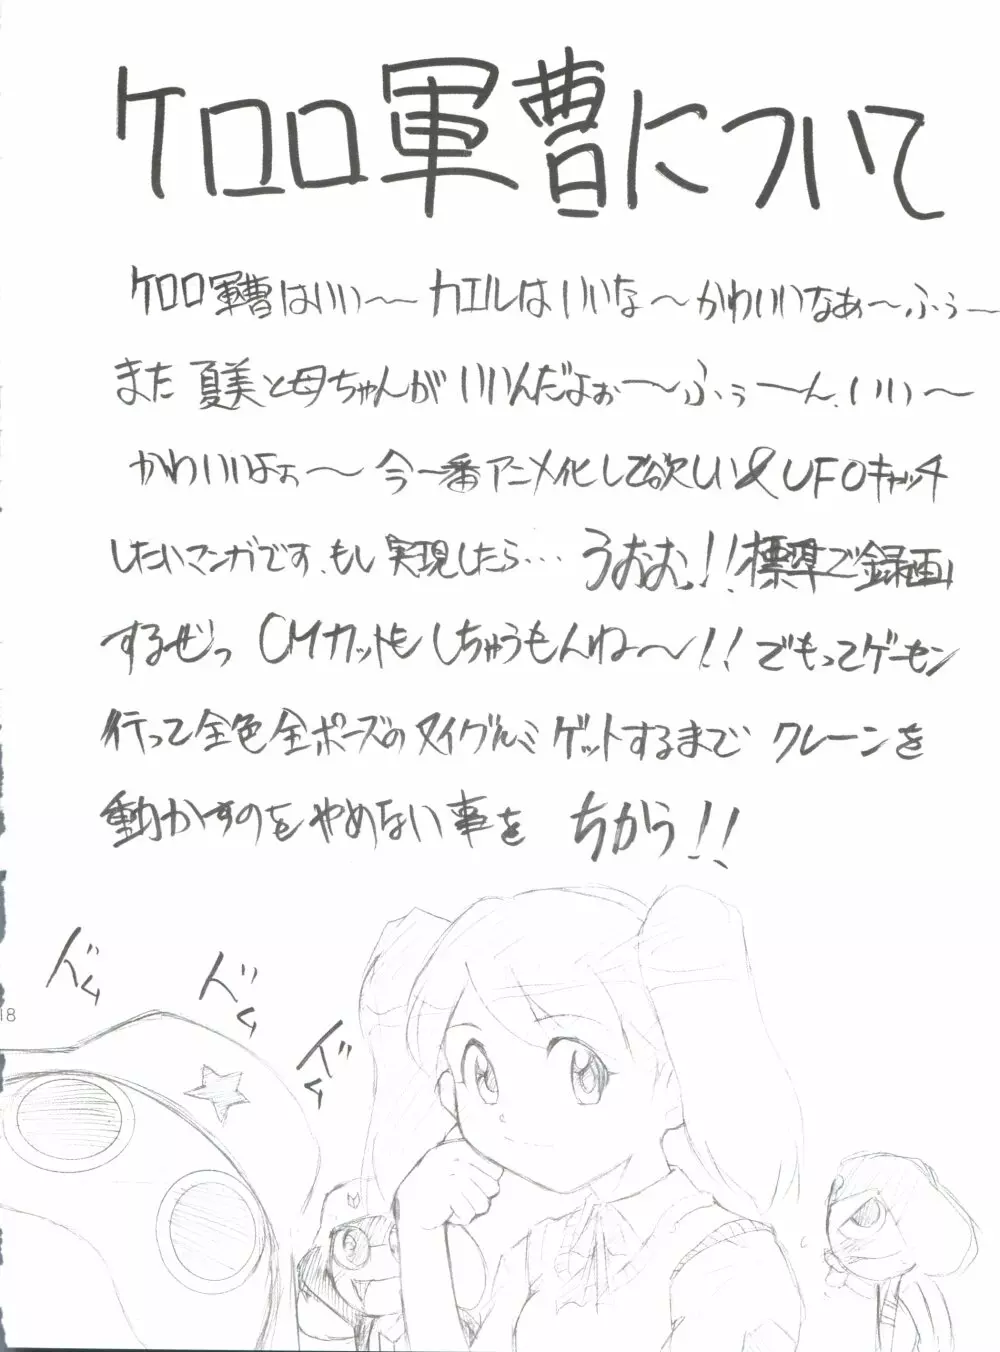 ケロロ軍曹について
ケロロ軍曹はいい〜カエルはいいな〜かわいいなぁ〜ふぅ〜
また夏美と母ちゃんがいいんだよぉ〜ふぅ〜ん、いい〜
かわいいよぉ〜今一番アニメ化して欲しい&UFOキャッチ
したいマンガです、もし実現したら…うおおっ!!標準で録画
するぜっCMカットもしちゅうもんね〜!!でもってゲーセン
行って全色全ポーズのヌイグルミゲットするまでクレーンを
動かすのをやめない事をちかう!!
ドム
ドム
ドム
18